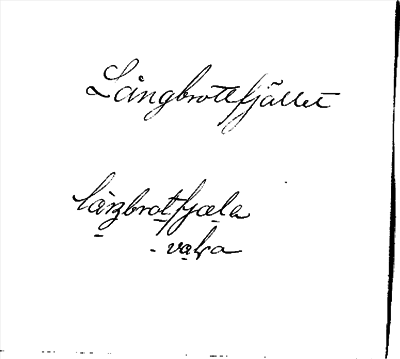 Långbrottfjället
låŋbrotfjæla
- valɽa